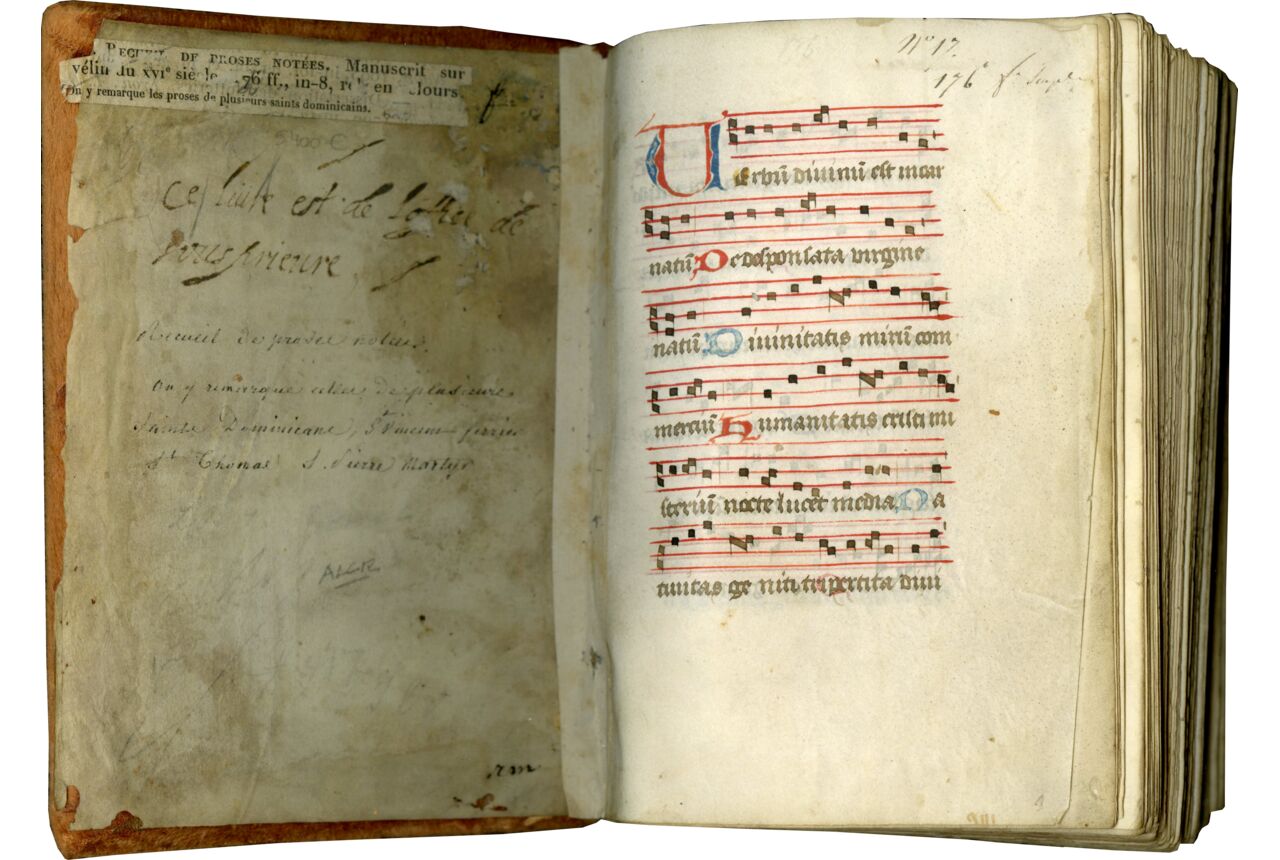 RECUEIL DE PROSES NOTÉES. Manuscrit sur
vélin du XVIe siècle 76 ff., in-8, en
On y remarque les proses de plusieurs saints dominicains.
5400 €
ce est de de
sousprieure
Recueil de proses notées.
On y remarque celles de plusieurs
Saints Dominicains, St Vincent ferrier
St Thomas S. Pierre Martyr
ALCR
N° 17
176
Verbū diuinū est incar
natū De desponsata virgine
natū Diuinitatis mirū com
merciū Humanitatis cristi mi
steriū nocte lucet media Na
tiuitas geniti tripertita diui